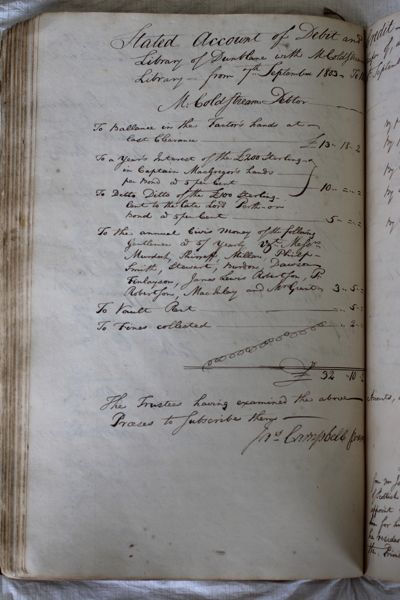 Stated Account of Debit and
Library of Dunblane with Mr Coldstream
Library from 7th September 1803 To
Mr Coldstream Debtor
To Ballance in the Factor's hands at
last Clearance £13 - 18 - 2
To a Year's Interest of the £200 Sterling
in Captain MacGregor's hands
per Bond at 5 per Cent 10 - " - "
To Ditto Ditto of the £100 Sterling
Lent to the late Lord Perth on
Bond at 5 per Cent 5 - " - "
To the annual Civis money of the following
Gentlemen at 5/ Yearly Vizt Messrs
Murdoch, Shirreff, Millar, Philips
Smith, Stewart, Burdon, Dawson
Finlayson, James Lewis Robertson, P.
Robertson, Mackilay and McGrut 3 - 5 -
To Vault Rent - 5 -
To Fines collected - 2 -
£ 32 - 10 -
The Trustees having examined the above
Præses to Subscribe there
Jas Campbell